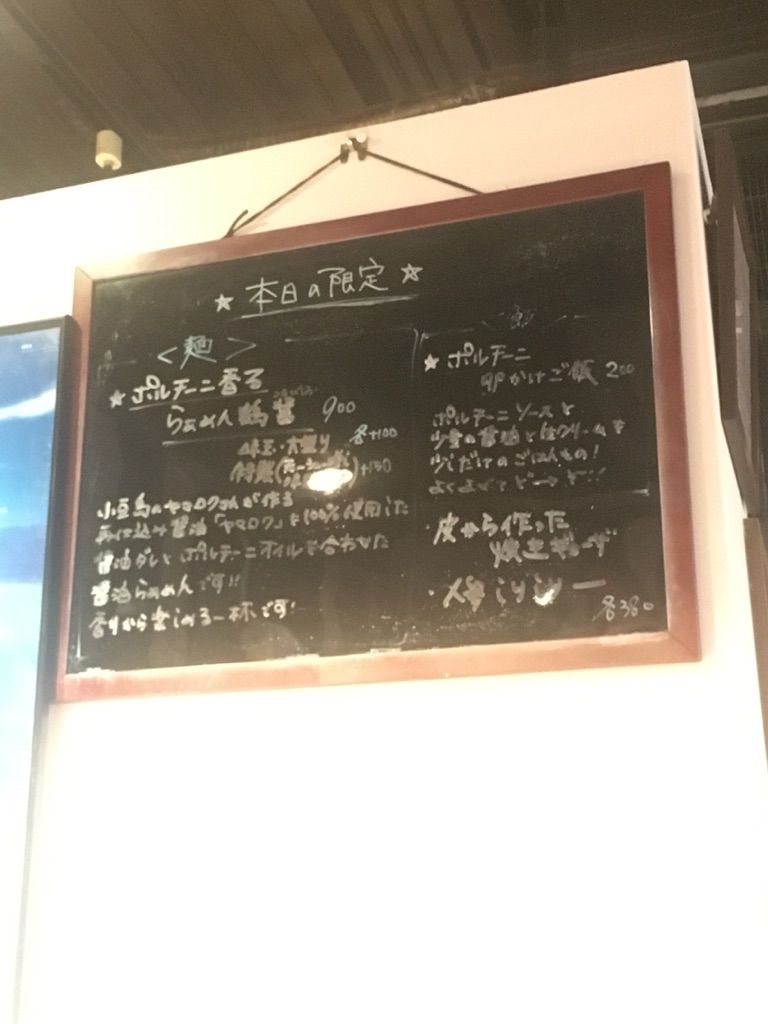 ☆ 本日の限定 ☆
<麺>
★ ポルチーニ香る
らぁめん 醤 900
味玉・大盛り 各+100
特製( )+130
小豆島のヤマロクさんが作る
再仕込み醤油「ヤマロク」を100%使用した
醤油ダレとポルチーニオイルを合わせた
醤油らぁめんです!!
香りから楽しめる一杯です!
★ ポルチーニ
卵かけご飯 200
ポルチーニソースと
少量の醤油と生クリームを
だけのごはんもの!
よくまぜてどーぞ!!
・皮から作った
焼きギョーザ
各380